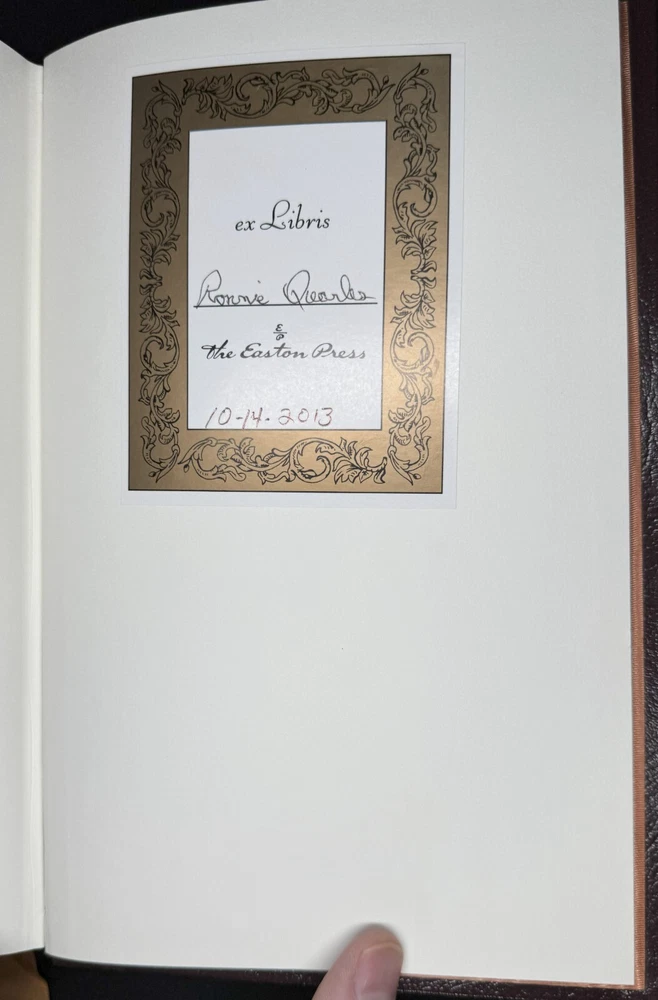 ex Libris
Ronnie Quarles
E
P
the Easton Press
10-14-2013